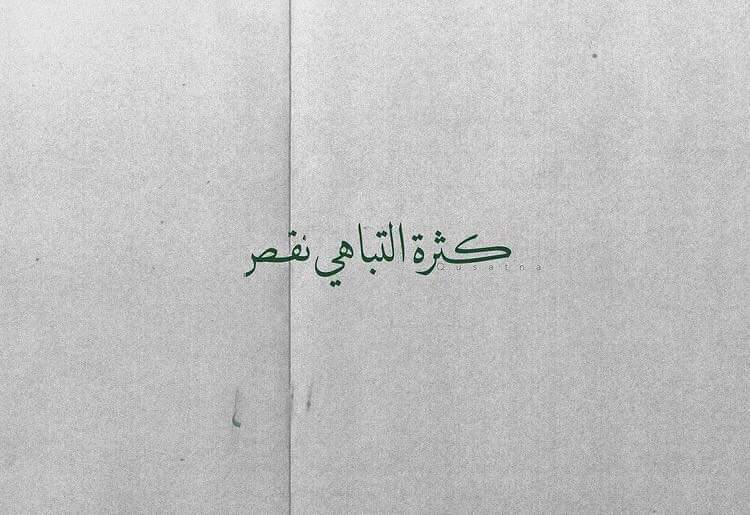 كثرة التباهي نقص
Qusatna